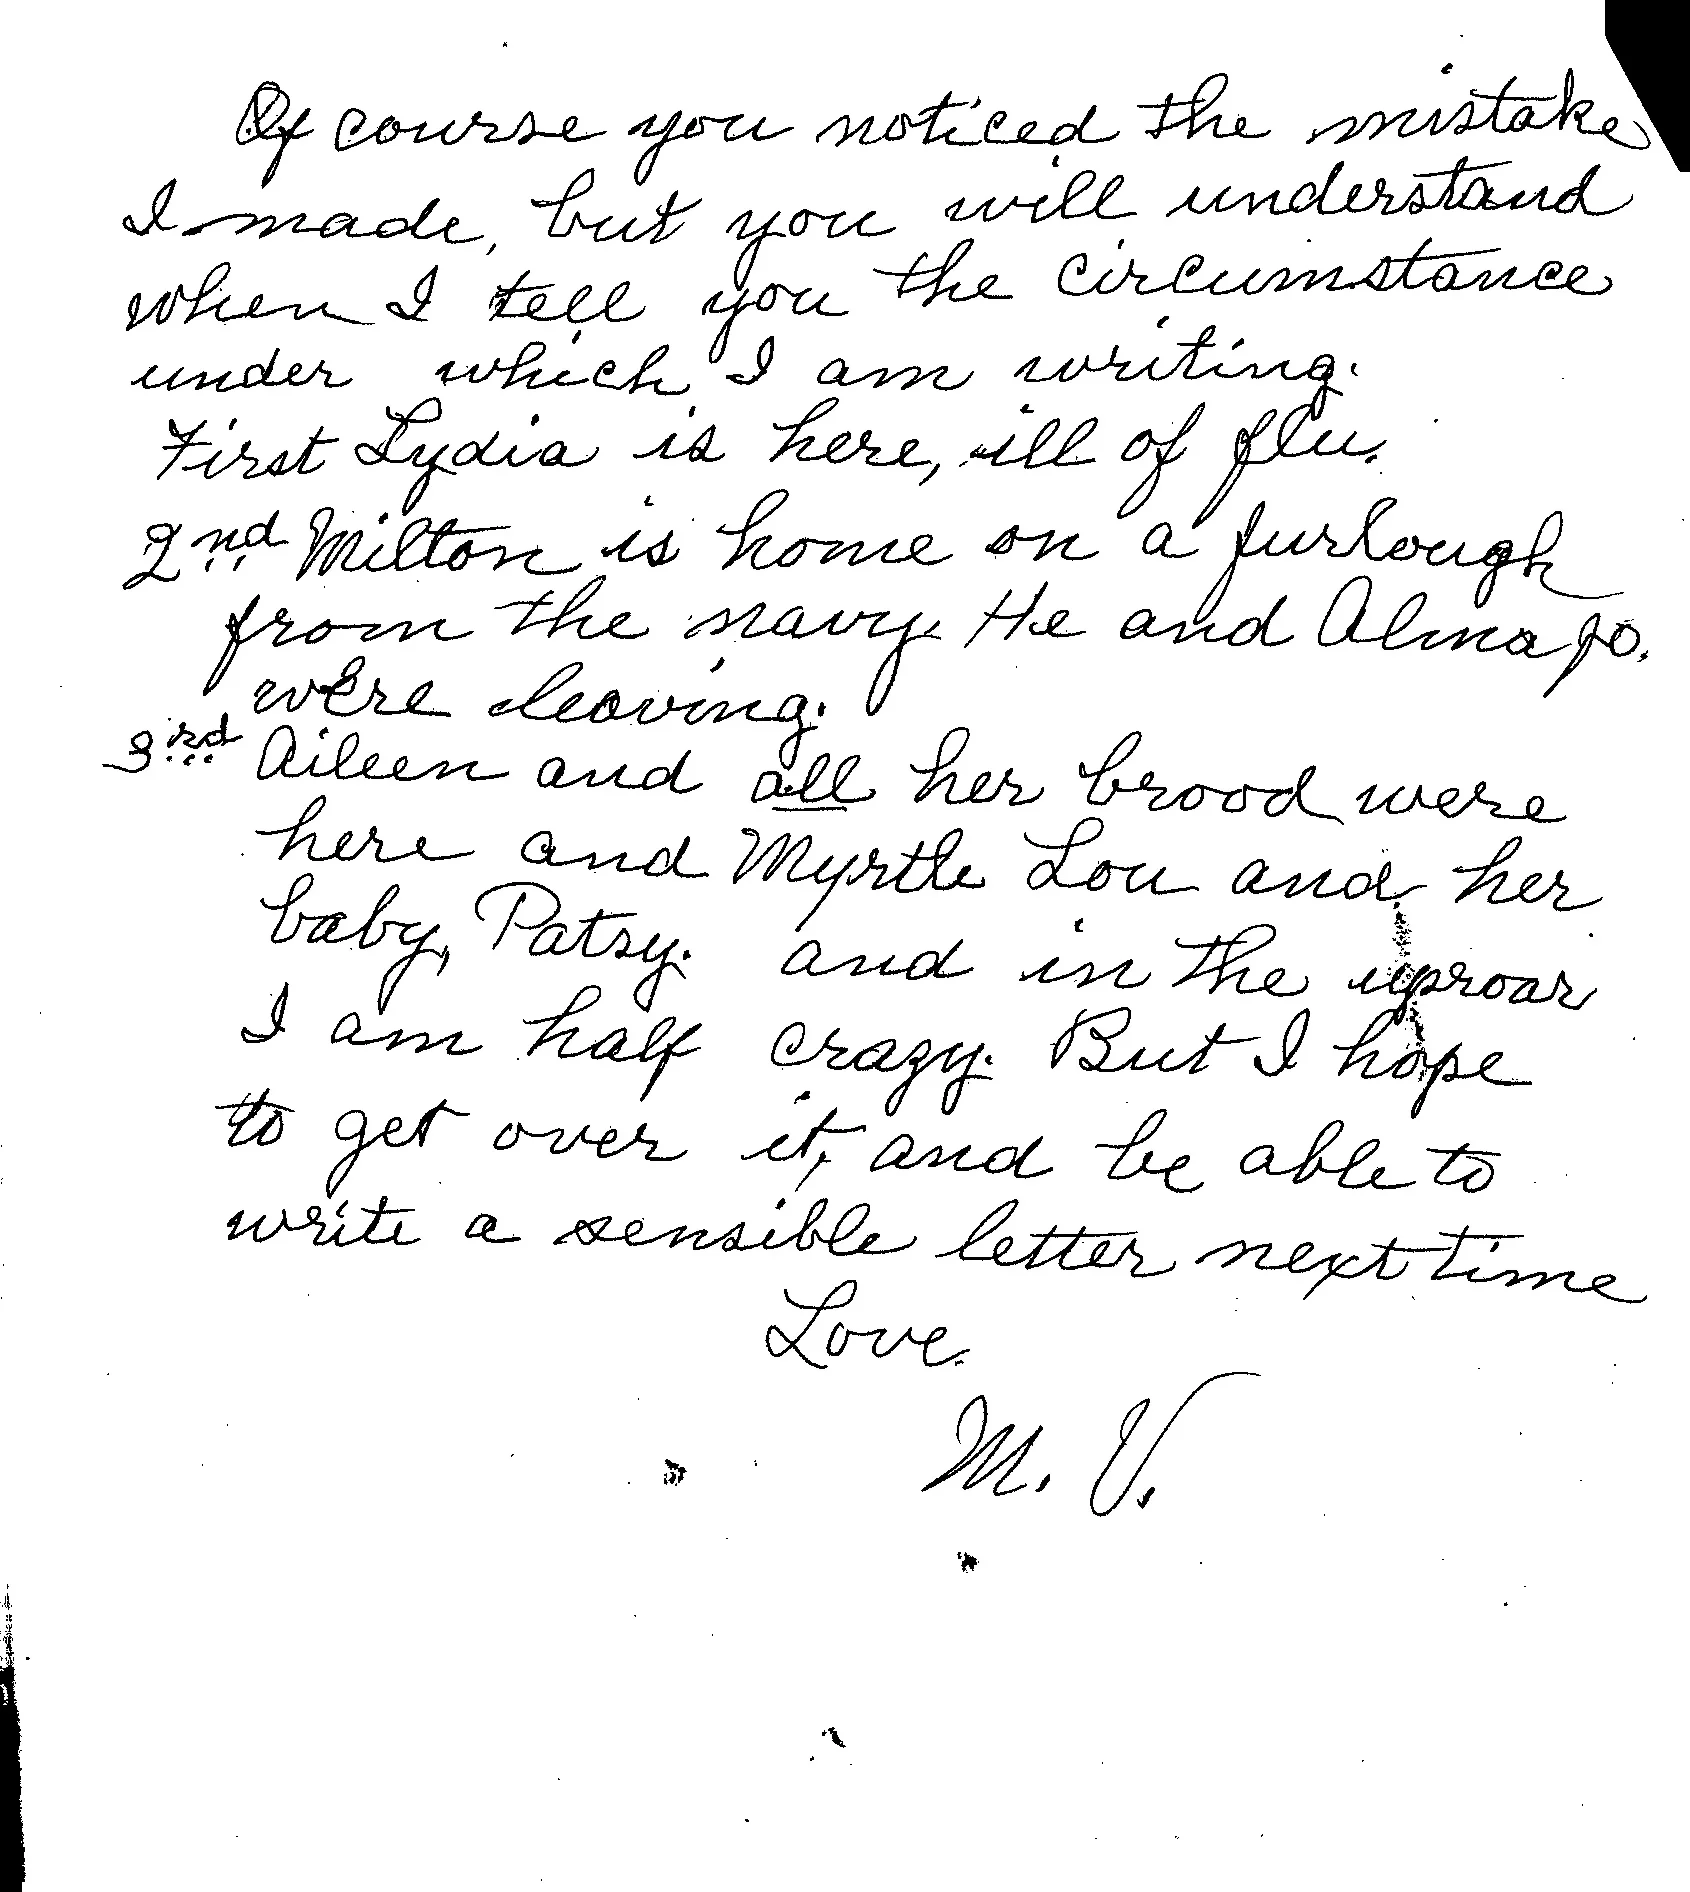 Of course you noticed the mistake
I made, but you will understand
when I tell you the circumstance
under which I am writing.
First Lydia is here, ill of flu.
2nd Milton is home on a furlough
from the navy. He and Alma Jo.
were leaving.
3rd Aileen and all her brood were
here and Myrtle Lou and her
baby, Patsy. and in the uproar
I am half crazy. But I hope
to get over it, and be able to
write a sensible letter next time
Love.
M. V.